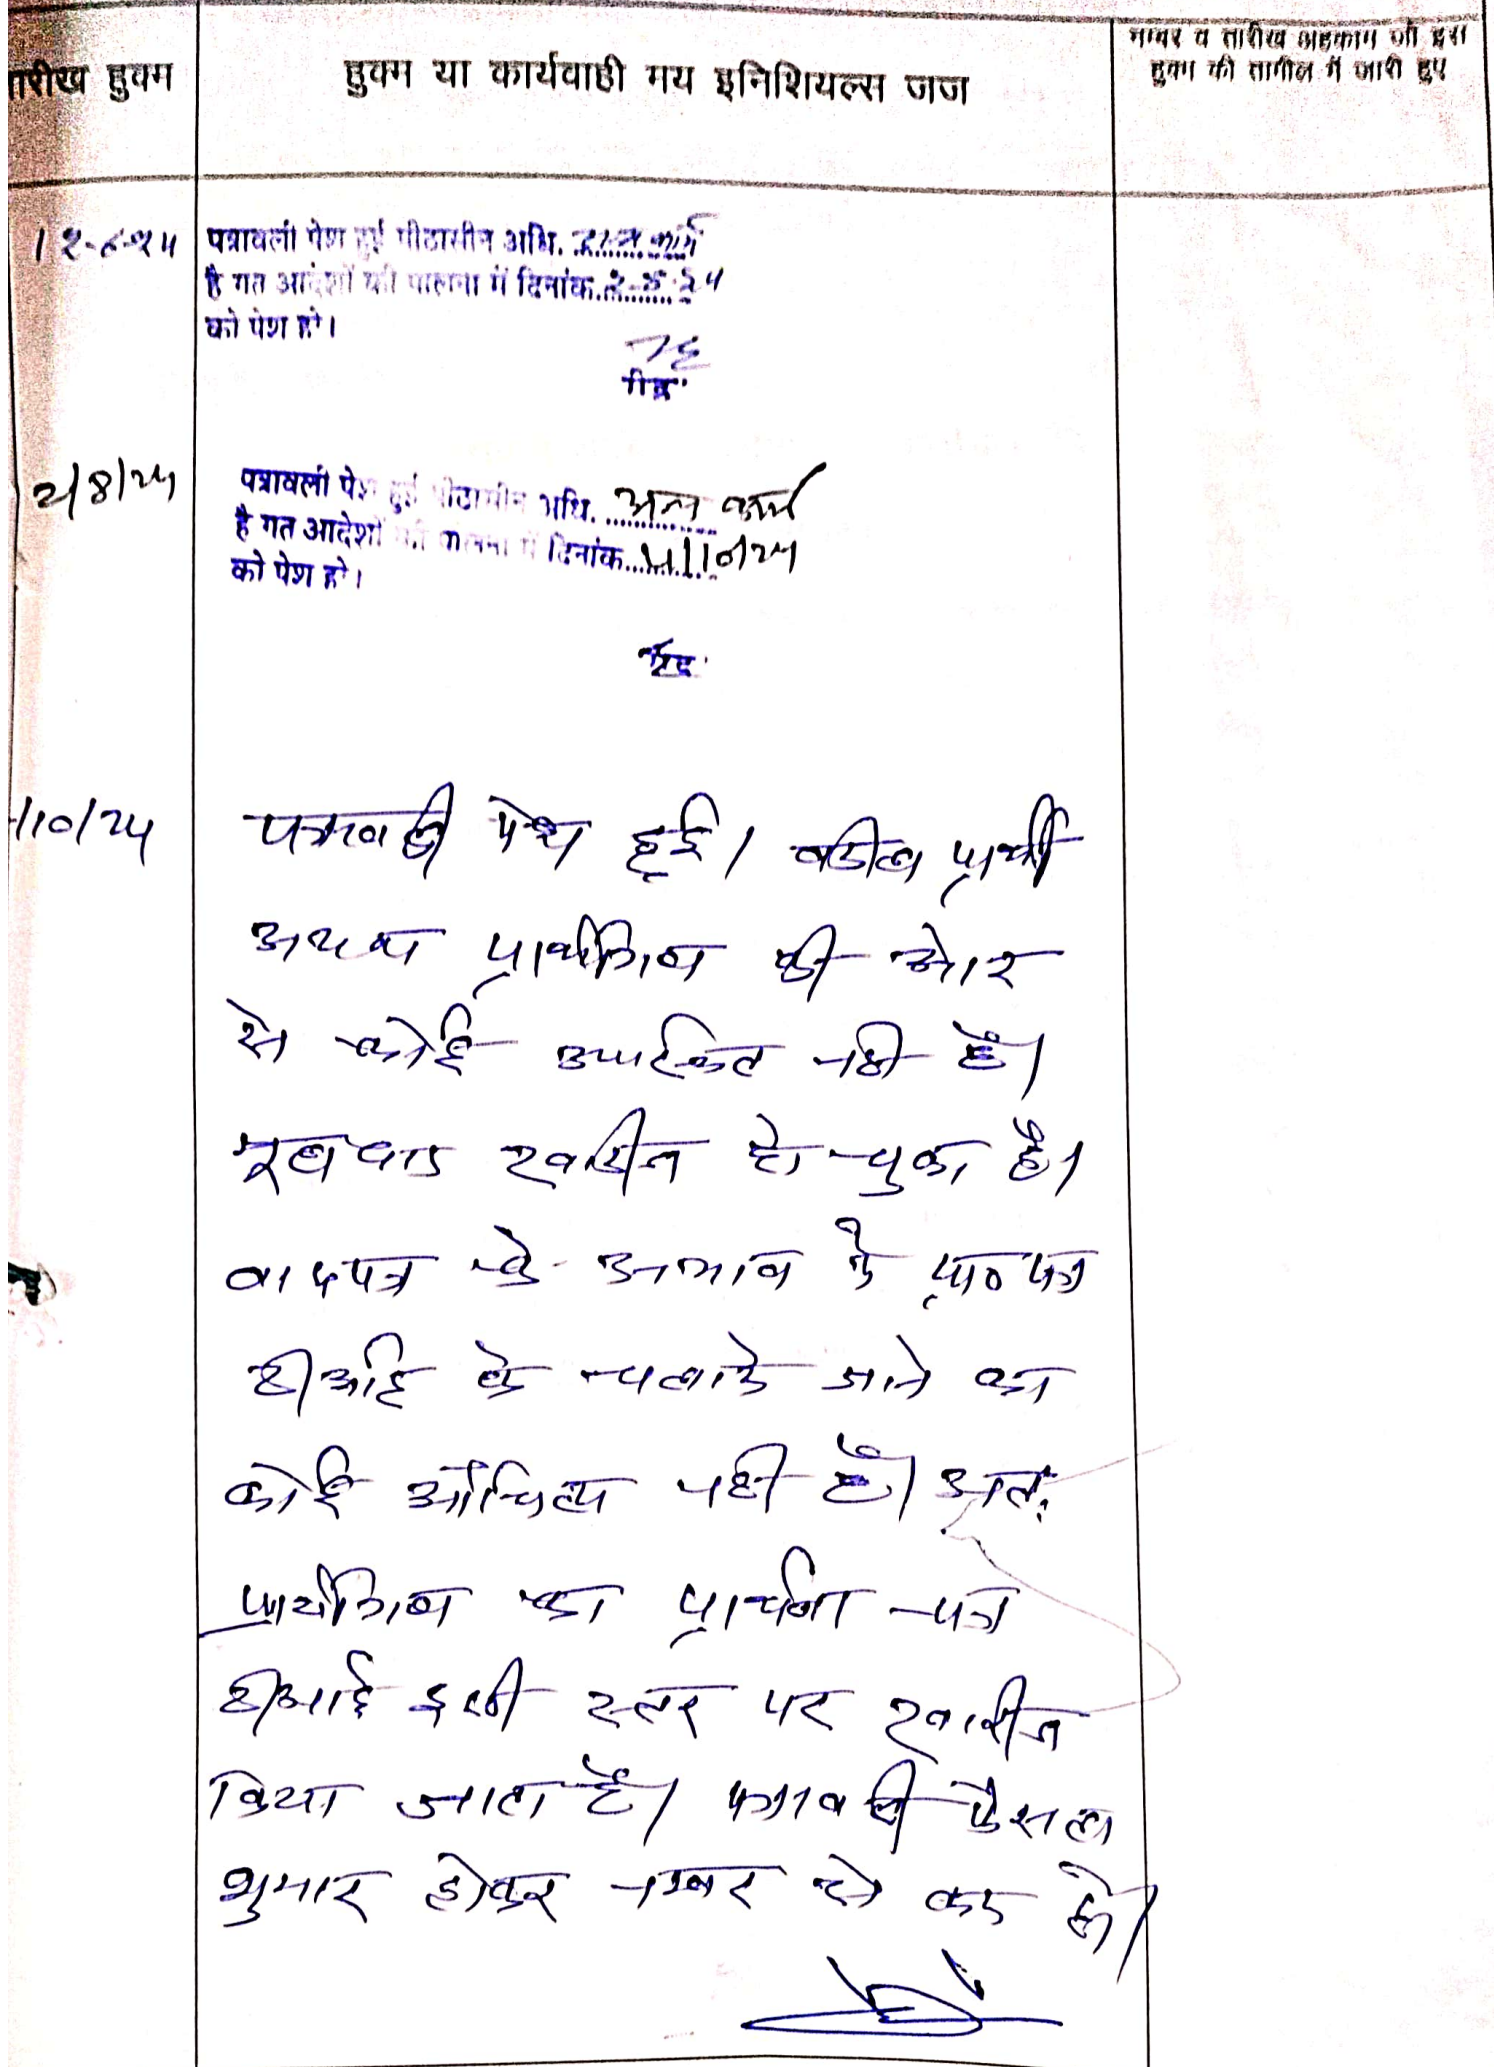 तारीख हुक्म
हुक्म या कार्यवाही मय इनिशियल्स जज
नम्बर व तारीख अहकाम जो इस
हुक्म की तामील में जारी हुए
पत्रावली पेश हुई पीठासीन अधि.
है गत आदेशों की पालना में दिनांक
को पेश हो।
रीडर
2/8/24
पत्रावली पेश हुई पीठासीन अधि. अन्य कार्य
है गत आदेशों की पालना में दिनांक 4/10/24
को पेश हो।
रीडर
/10/24
पत्रावली पेश हुई। वकील प्रार्थी
अथवा प्रार्थीगण की ओर
से कोई उपस्थित नही है।
मूलवाद खारीज हो चुका है।
वादपत्र के अभाव में प्रा० पत्र
टीआई के चलाये जाने का
कोई औचित्य नही है। अतः
प्रार्थीगण का प्रार्थना पत्र
टीआई इसी स्तर पर खारीज
किया जाता है। पत्रावली फैसल
शुमार होकर नम्बर से कम हो।